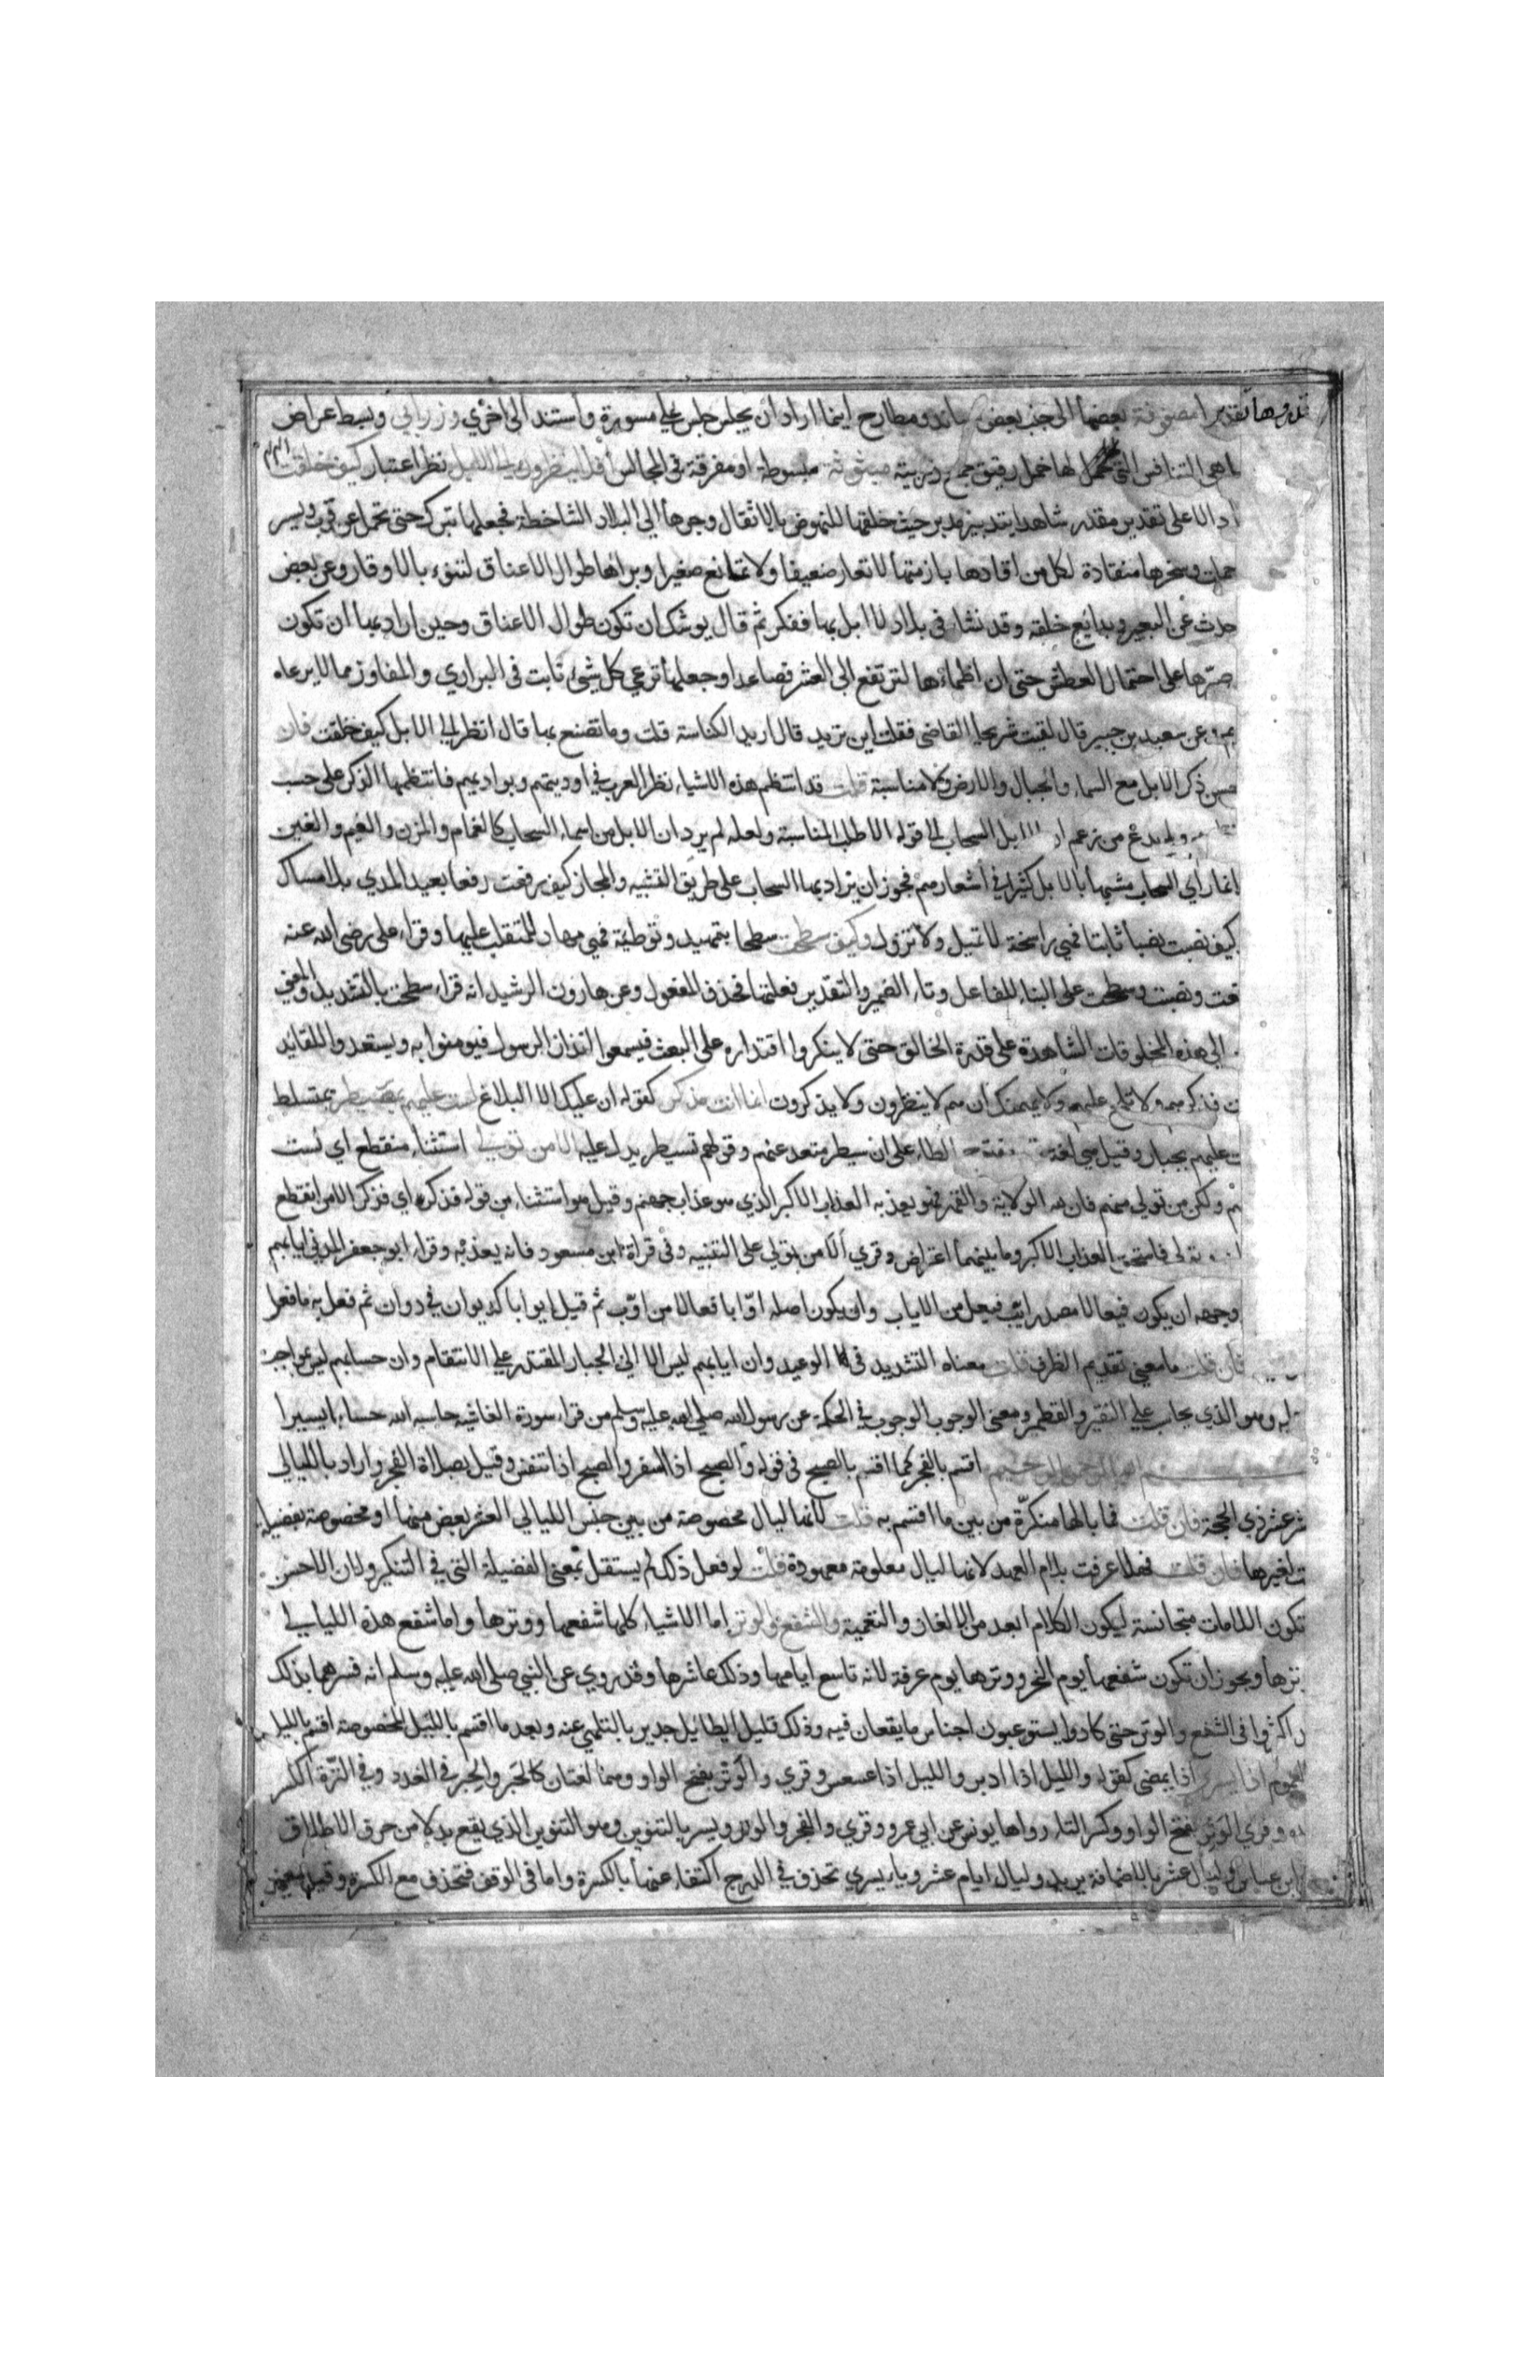 قدروها تقديرا مصفوفة بعضها الى جنب بعض مساند ومطارح اينما اراد ان يجلس جلس على مسورة واستند الى اخري وزرابي وبسط عراض
ما هي الطنافس التي لها خمل رقيق جمع زربية مبثوثة مبسوطة او مفرقة في المجالس افلا ينظرون الى الابل نظر اعتبار كيف خلقت
دالا على تقدير مقدر شاهدا بتدبير مدبر حيث خلقها للنهوض بالاثقال وجرها الى البلاد الشاخطة فجعلها تبرك حتى تحمل عن قرب ويسر
حملت وسخرها منقادة لكل من اقتادها بازمتها لا تعاز ضعيفا ولا تمانع صغيرا وبراها طوال الاعناق لتنوء بالاوقار وعن بعض
حدث عن البعير وبدايع خلقه وقد نشا في بلاد لا ابل بها ففكر ثم قال يوشك ان تكون طوال الاعناق وحين اراد بها ان تكون
صبرها على احتمال العطش حتى ان اظماءها لترتفع الى العشر فصاعدا وجعلها ترعى كل شئ نابت في البراري والمفاوز مما لا يرعاه
عن سعيد بن جبير قال لقيت شريحا القاضي فقلت اين تريد قال اريد الكناسة قلت وما تصنع بها قال انظر الى الابل كيف خلقت فان
حسن ذكر الابل مع السماء والجبال والارض ولا مناسبة قلت قد انتظم هذه الاشياء نظر العرب في اوديتهم وبواديهم فانتظمها الذكر على حسب
ولم يدع من زعم ان الابل السحاب الى قوله الا طلب المناسبة ولعله لم يرد ان الابل من اسماء السحاب كالغمام والمزن والغيم والغين
انما راى السحاب مشبها بالابل كثيرا في اشعارهم فجوز ان يراد بها السحاب على طريق التشبيه والمجاز كيف رفعت رفعا بعيد المدي بلا مساك
كيف نصبت نصبا ثابتا فهي راسخة لا تميل ولا تزول وكيف سطحت سطحا بتمهيد وتوطئة فهي مهاد للمتقلب عليها وقراء على رضى الله عنه
فعت ونصبت وسطحت على البناء للفاعل وتاء الضمير والتقدير فعلتها فحذف المفعول وعن هارون الرشيد انه قراء سطحت بالتشديد والمعنى
الى هذه المخلوقات الشاهدة على قدرة الخالق حتى لا ينكروا اقتداره على البعث فيسمعوا انذار الرسول فيومنوا به ويستعدوا للقائه
فذكرهم ولا تلح عليهم ولا يهمنك انهم لا ينظرون ولا يذكرون انما انت مذكر كقوله ان عليك الا البلاغ لست عليهم بمصيطر بمتسلط
ت عليهم بجبار وقيل هي لغة بفتح الطاء على ان سيطر متعد عندهم وقولهم تسيطر يدل عليه الا من تولى استثناء منقطع اي لست
ولكن من تولى منهم فان لله الولاية والقهر فهو يعذبه العذاب الاكبر الذي هو عذاب جهنم وقيل هو استثناء من قوله فذكر اي فذكر الا من انقطع
تولى فاستحق العذاب الاكبر وما بينهما اعتراض وقري ألا من تولى على التنبيه وفي قراة ابن مسعود فانه يعذبه وقراء ابو جعفر المدني ايابهم
وجهه ان يكون فيعالا مصدر ايب فيعل من الاياب وان يكون اصله اوابا فعالا من اوب ثم قيل ايوابا كديوان في دوان ثم فعل به ما فعل
فان قلت ما معنى تقديم الظرف قلت معناه التشديد في الوعيد وان ايابهم ليس الا الى الجبار المقتدر على الانتقام وان حسابهم ليس بواجب
وهو الذي يحاسب على النقير والقطمير ومعنى الوجوب الوجوب في الحكمة عن رسول الله صلى الله عليه وسلم من قراء سورة الغاشية حاسبه الله حسابا يسيرا
اقسم بالفجر كما اقسم بالصبح في قوله والصبح اذا اسفر والصبح اذا تنفس وقيل بصلاة الفجر واراد بالليالي
عشر ذي الحجة فان قلت فما بالها منكرة من بين ما اقسم به قلت لانها ليال مخصوصة من بين جنس الليالي العشر بعض منها او مخصوصة بفضيلة
ت لغيرها فان قلت فهلا عرفت بلام العهد لانها ليال معلومة معهودة قلت لو فعل ذلك لم يستقل بمعنى الفضيلة التي في التنكير ولان الاحسن
تكون اللامات متجانسة ليكون الكلام ابعد من الالغاز والتعمية والشفع والوتر اما الاشياء كلها شفعها ووترها واما شفع هذه الليالي
ترها ويجوز ان تكون شفعها يوم النحر ووترها يوم عرفة لانه تاسع ايامها وذلك عاشرها وقد روي عن النبي صلى الله عليه وسلم انه فسرهما بذلك
اكثروا في الشفع والوتر حتى كادوا يستوعبون اجناس ما يقعان فيه وذلك قليل الطائل جدير بالتلهي عنه وبعد ما اقسم بالليالي المخصوصة اقسم بالليل
العموم اذا يسر اذا يمضي كقوله والليل اذا ادبر والليل اذا عسعس وقري والوتر بفتح الواو وهما لغتان كالحبر والحبر في العدد وفي الترة الكسر
ده وقري الوتر بفتح الواو وكسر التاء رواها يونس عن ابي عمرو وقري والفجر والوتر ويسر بالتنوين وهو التنوين الذي يقع بدلا من حرف الاطلاق
ابن عباس وليال عشر بالاضافة يريد وليال ايام عشر وياء يسري تحذف في الدرج اكتفاء عنها بالكسرة واما في الوقف فتحذف مع الكسرة وقيل معنى